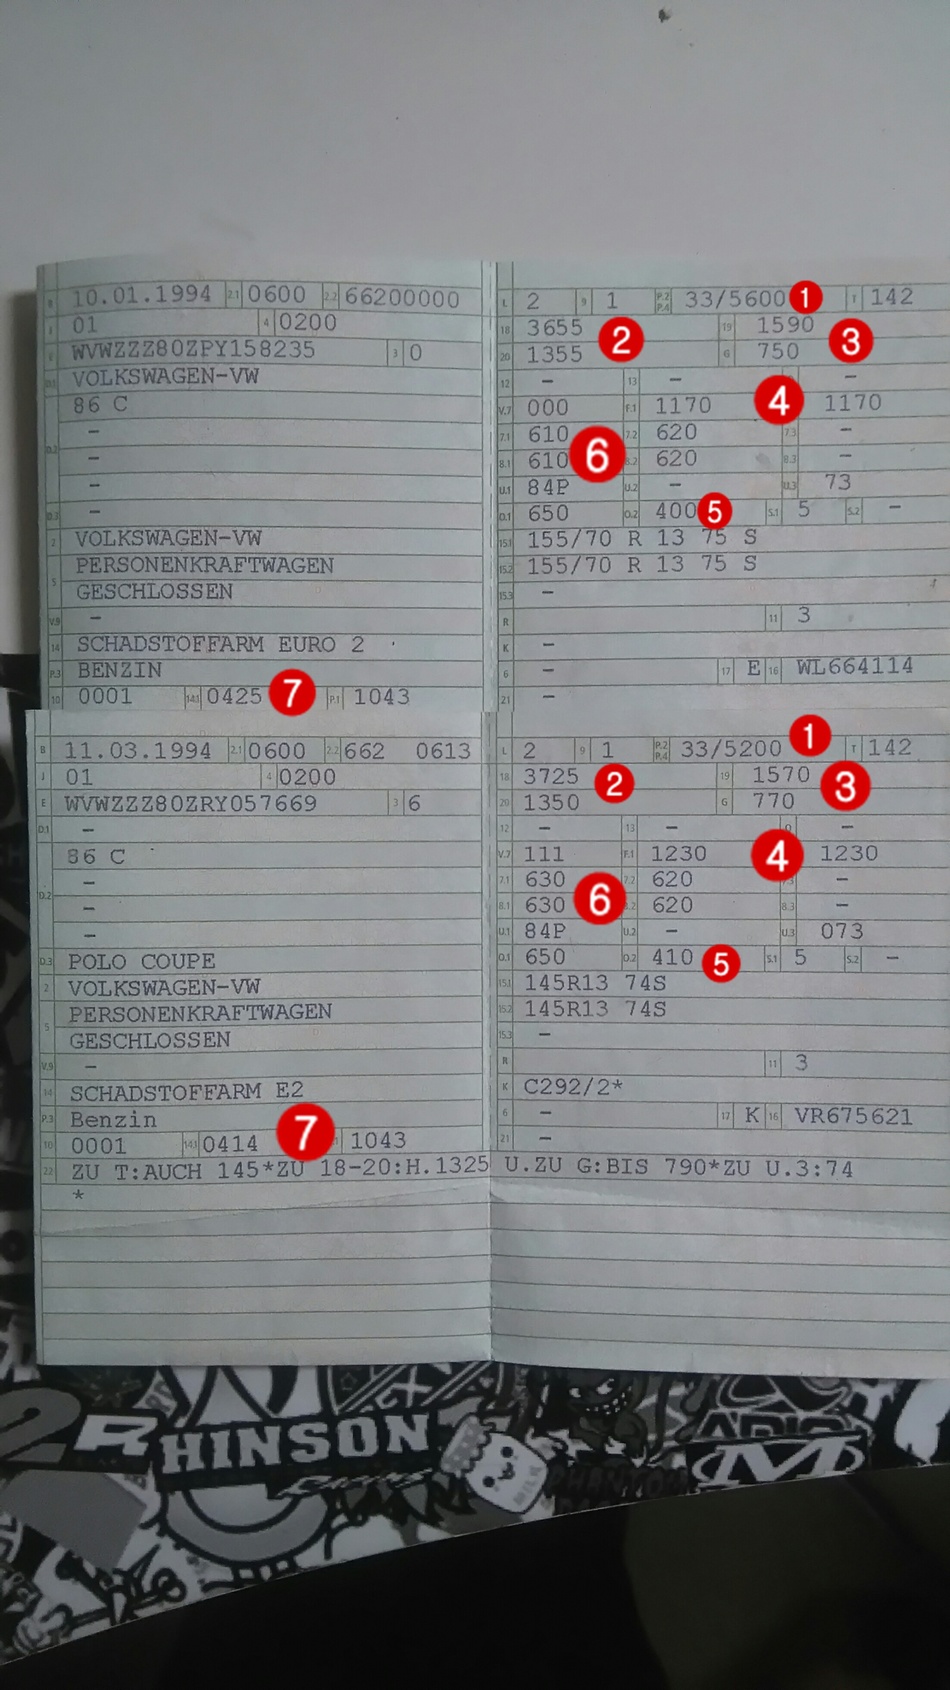 B 10.01.1994 2.1 0600 2.2 66200000
J 01 4 0200
E WVWZZZ80ZPY158235 3 0
D.1 VOLKSWAGEN-VW
86 C
–
D.2 –
–
D.3 –
2 VOLKSWAGEN-VW
5 PERSONENKRAFTWAGEN
GESCHLOSSEN
V.9 –
14 SCHADSTOFFARM EURO 2
P.3 BENZIN
10 0001 14.1 0425 7 P.1 1043
L 2 9 1 P.2 P.4 33/5600 1 T 142
18 3655 2 19 1590 3
20 1355 G 750
12 – 13 – –
V.7 000 F.1 1170 4 1170
7.1 610 6 7.2 620 7.3 –
8.1 610 8.2 620 8.3 –
U.1 84P U.2 – U.3 73
O.1 650 O.2 400 5 S.1 5 S.2 –
15.1 155/70 R 13 75 S
15.2 155/70 R 13 75 S
15.3 –
R 11 3
K –
6 – 17 E 16 WL664114
21 –
B 11.03.1994 2.1 0600 2.2 662 0613
J 01 4 0200
E WVWZZZ80ZRY057669 3 6
D.1 –
86 C
–
D.2 –
–
D.3 POLO COUPE
2 VOLKSWAGEN-VW
5 PERSONENKRAFTWAGEN
GESCHLOSSEN
V.9 –
14 SCHADSTOFFARM E2
P.3 Benzin
10 0001 14.1 0414 7 1043
L 2 9 1 P.2 P.4 33/5200 1 T 142
18 3725 2 19 1570 3
20 1350 G 770
12 – 13 – Q –
V.7 111 F.1 1230 4 1230
7.1 630 6 7.2 620 7.3 –
8.1 630 8.2 620 8.3 –
U.1 84P U.2 – U.3 073
O.1 650 O.2 410 5 S.1 5 S.2 –
15.1 145R13 74S
15.2 145R13 74S
15.3 –
R 11 3
K C292/2*
6 – 17 K 16 VR675621
21 –
22 ZU T:AUCH 145*ZU 18-20:H.1325 U.ZU G:BIS 790*ZU U.3:74
*
2R HINSON
Racing
PHANTOM
MILK